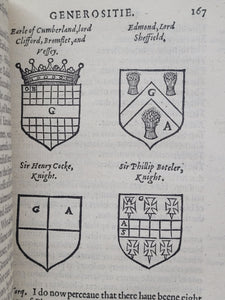 GENEROSITIE. 167
Earle of Cumberland, lord
Clifford, Bromflet, and
Vessey.
Edmond, Lord
Sheffield,
G
G
A
Sir Henry Cocke,
Knight.
Sir Phillip Boteler,
Knight.
G A
W G
A
S
Torq. I do now perceaue that there haue beene eight